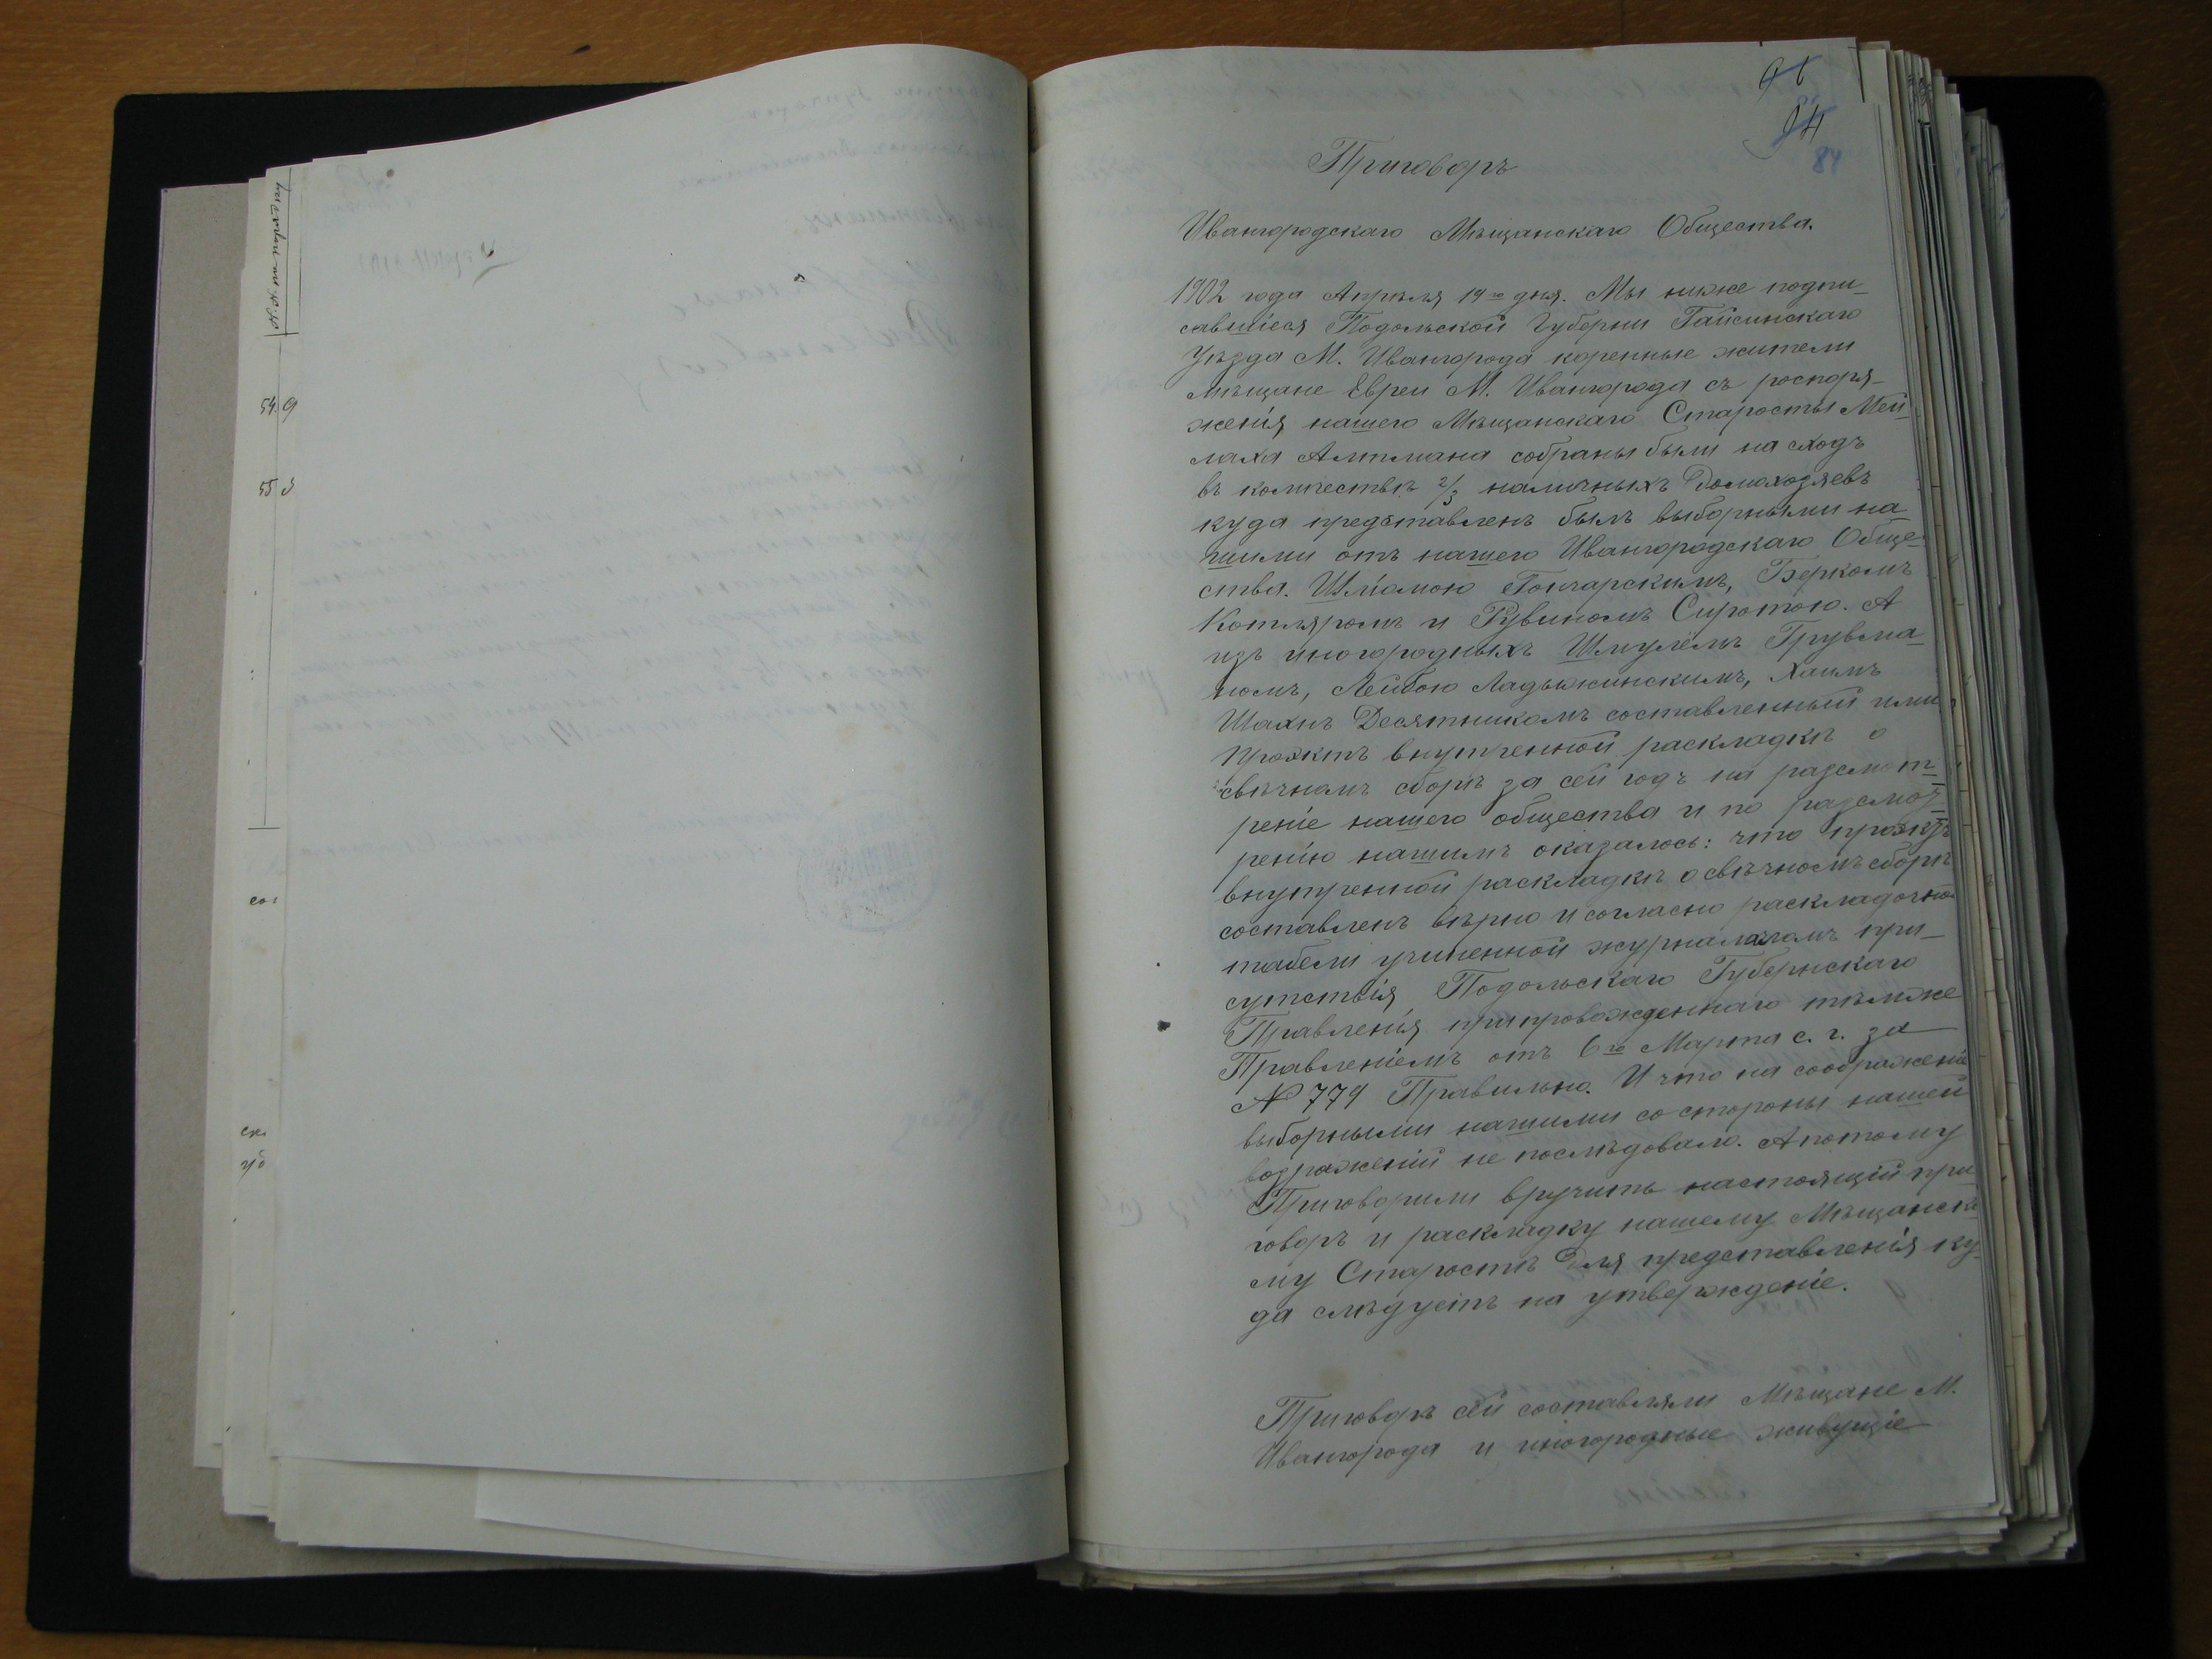 84
Приговоръ
Ивангородскаго Мѣщанскаго Общества.
1902 года Апрѣля 14го дня. Мы ниже подпи-
савшіеся Подольской Губерніи Гайсинскаго
Уѣзда М. Ивангорода коренные жители
мѣщане Евреи М. Ивангорода съ роспоря-
женія нашего Мѣщанскаго Старосты Мей-
лаха Алтмана собраны были на сходъ
въ количествѣ 2/3 наличныхъ Домохозяевъ
куда представленъ былъ выборными на
шими отъ нашего Ивангородскаго Обще-
ства. Шліомою Гончарскимъ, Беркомъ
Котляромъ и Рувиномъ Сиротою. А
изъ иногородныхъ Шмулемъ Трувма
номъ, Лейбою Ладыжинскимъ, Хаимъ
Шахнъ Десятникомъ составленный ими
проэктъ внутренной раскладкѣ о
свѣчномъ сборѣ за сей годъ на разсмот-
реніе нашего общества и по разсмот-
ренію нашимъ оказалось: что проэктъ
внутренной раскладкѣ о свѣчномъ сборѣ
составленъ вѣрно и согласно раскладочной
табели учиненной журналомъ при-
сутствія Подольскаго Губернскаго
Правленія припровожденнаго тѣмже
Правленіемъ отъ 6го Марта с. г. за
№ 779 Правильно. И что на соображеніе
выборными нашими со стороны нашей
возраженій не послѣдовало. А потому
Приговорили вручить настоящій при
говоръ и раскладку нашему Мѣщанско
му Старостѣ для представленія ку-
да слѣдуетъ на утвержденіе.
Приговоръ сей составляли Мѣщане М.
Ивангорода и иногородные живущіе